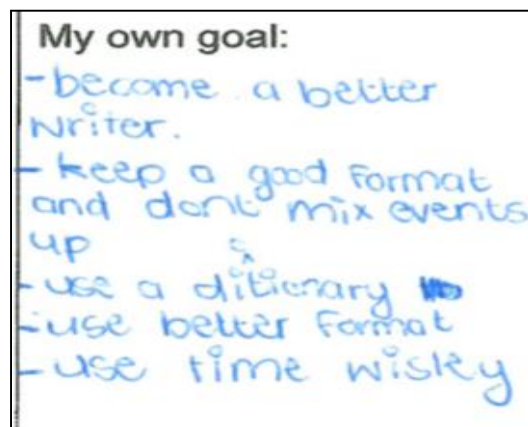 My own goal:
- become a better
writer.
- keep a good format
and dont mix events
up
- use a dictionary
- use better format
- use time wisley